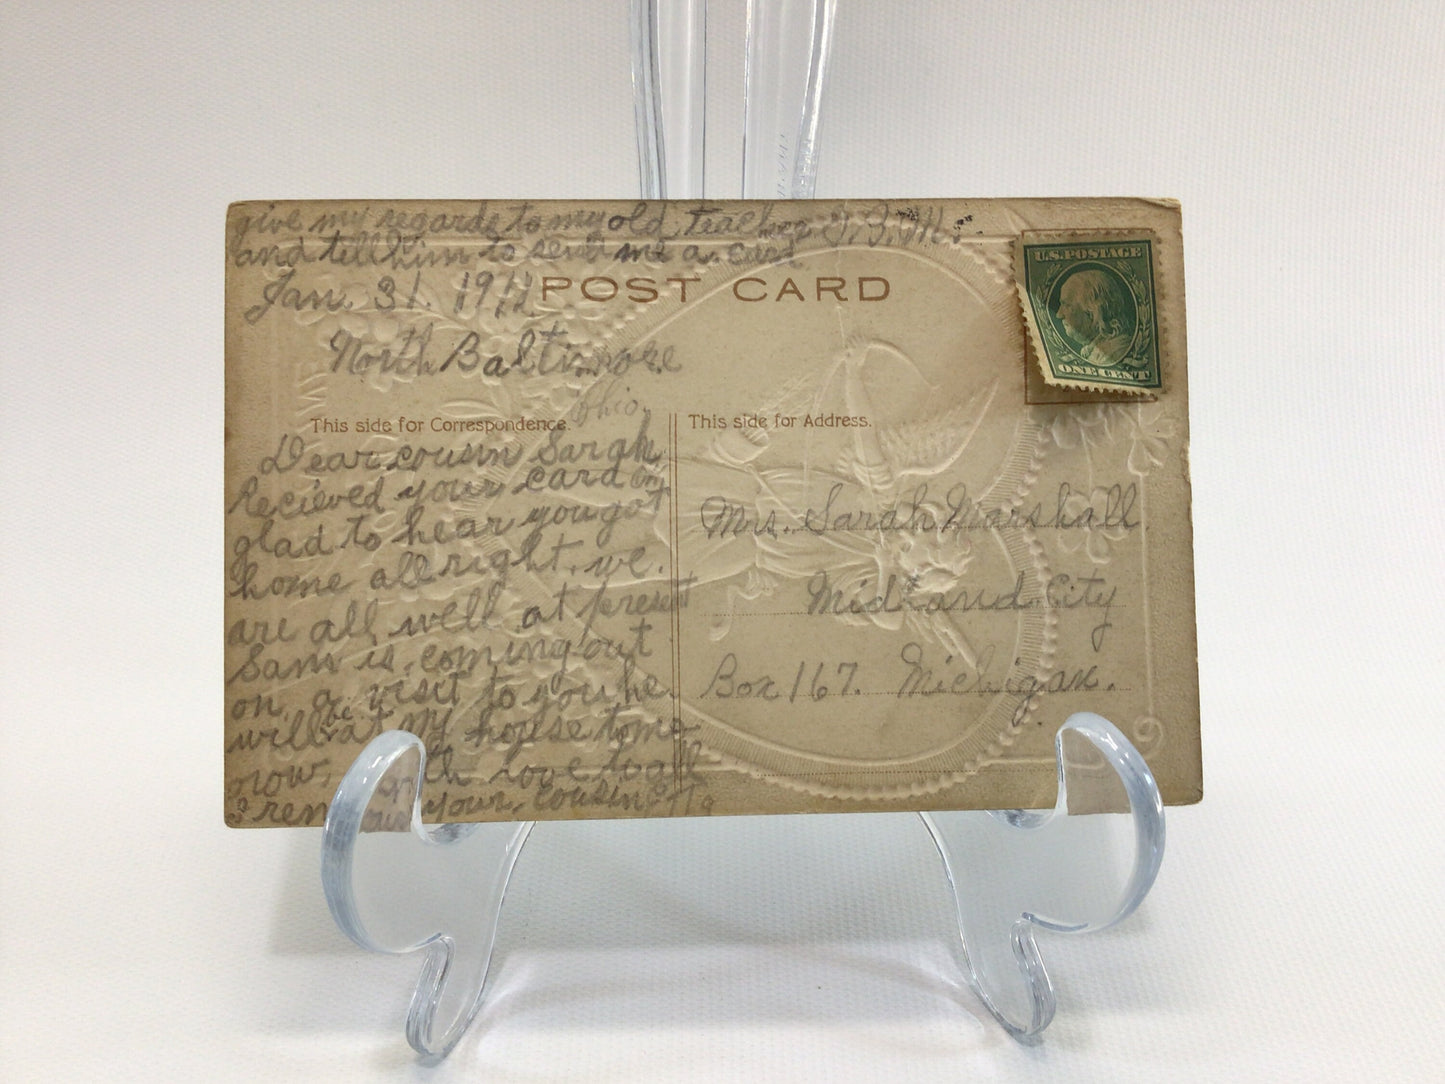 give my regards to my old teacher J. B. M.
and tell him to send me a card
Jan. 31. 1912
POST CARD
U.S. POSTAGE
ONE CENT
North Baltimore
Ohio.
This side for Correspondence.
This side for Address.
Dear cousin Sarah
Recieved your card am
glad to hear you got
home all right. we.
are all well at present
Sam is coming out
on a visit to you he
will be at my house tomo
orow, with love to all
I your, cousin Etta
Mrs. Sarah Marshall.
Midland City
Box 167. Michigan.